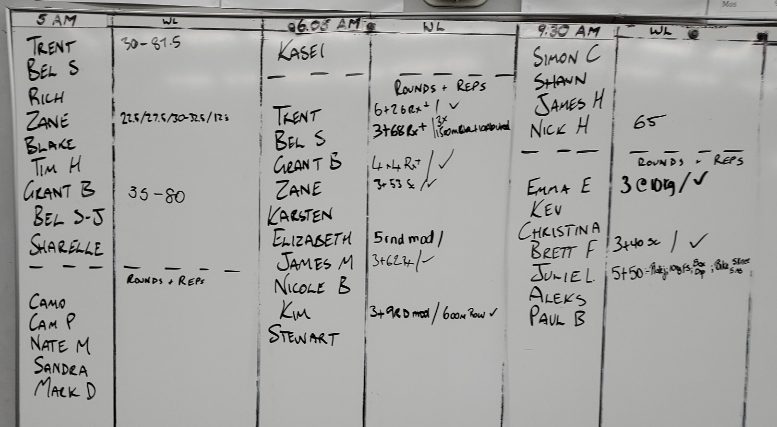 Mos
5 AM WL
TRENT 30-87.5
BEL S
RICH
ZANE 22.5/27.5/30-32.5/
BLAKE
TIM H
GRANT B 35-80
BEL S-J
SHARELLE
ROUNDS + REPS
CAMO
CAM P
NATE M
SANDRA
MARK D
6.05 AM WL
KASEI
ROUNDS + REPS
TRENT 6+26 Rx+ / ✓
BEL S 3+68 Rx+ /
GRANT B 4+4 Rx+ / ✓
ZANE 3+53 sc /✓
KARSTEN
ELIZABETH 5 rnd mod /
JAMES M
NICOLE B
KIM 3+9RD mod / 600m Row ✓
STEWART
9.30 AM WL
SIMON C
SHAWN
JAMES H
NICK H 65
ROUNDS + REPS
EMMA E 3 @ 10kg / ✓
KEV
CHRISTINA
BRETT F 3+40 sc / ✓
JULIE L 5+50
ALEKS
PAUL B